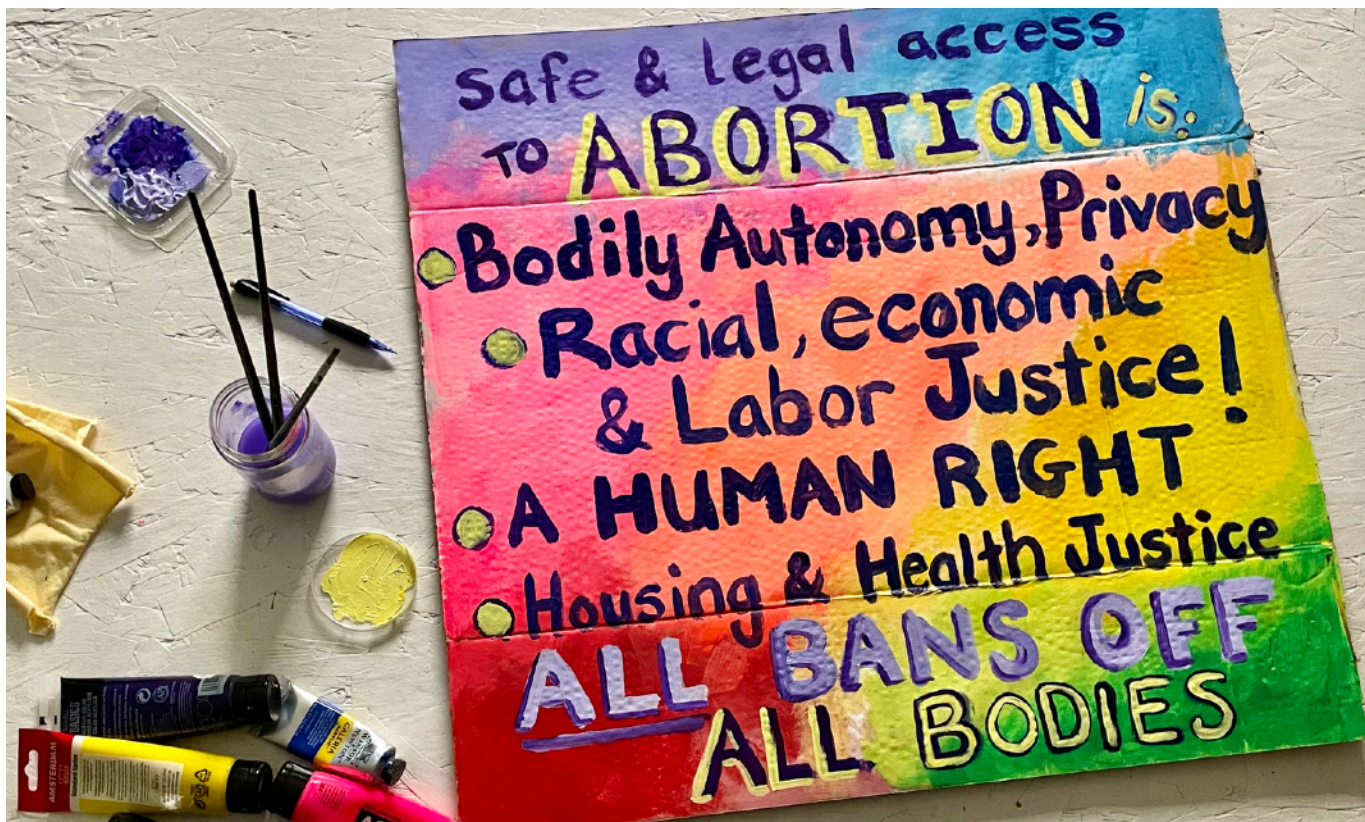 Safe & legal access
TO ABORTION is:
Bodily Autonomy, Privacy
Racial, economic
& Labor Justice!
A HUMAN RIGHT
Housing & Health Justice
ALL BANS OFF
ALL BODIES
AMSTERDAM
GALERIA